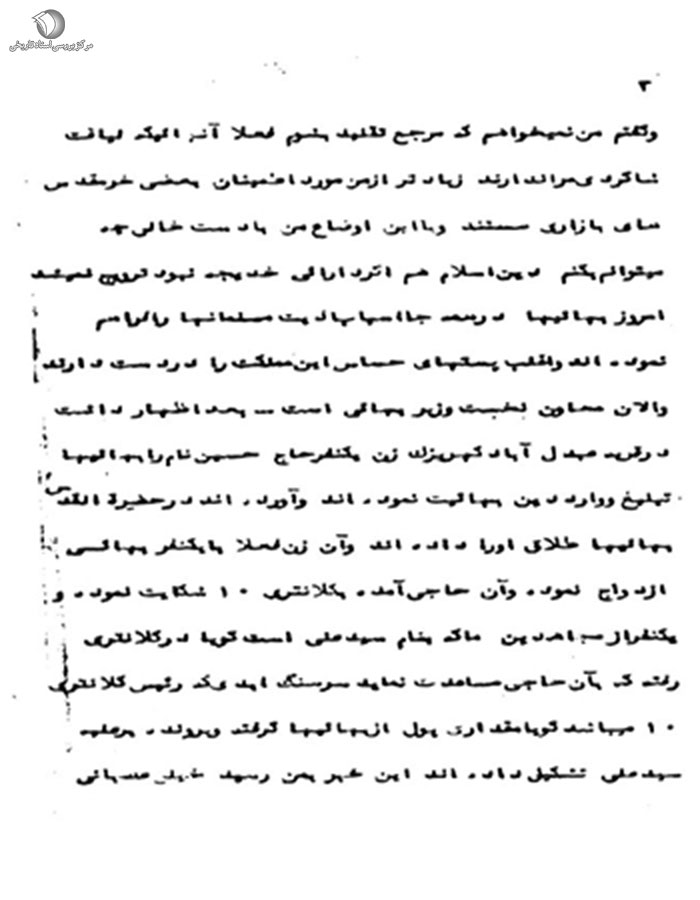 مرکز بررسی اسناد تاریخی
۳
وگفتم من نمیخواهم که مرجع تقلید بشوم فعلا آنهائیکه لیاقت
شاگردی مراندارند زیادتر ازمن مورد اطمینان بعضی خرمقدس
های بازاری هستند وبااین اوضاع من بادست خالی چه
میتوانم بکنم دین اسلام هم اگردارائی خدیجه نبود ترویج نمیشد
امروز بهائیها درهمه جااسباب اذیت مسلمانها رافراهم
نموده اند واغلب پستهای حساس این مملکت را دردست دارند
والان معاون نخست وزیر بهائی است ــ بعد اظهار داشت
درقریه عبدل آباد کهریزک زن یکنفرحاج حسین نام رابهائیها
تبلیغ ووارد دین بهائیت نموده اند وآورده اند درحضیرة القدس
بهائیها طلاق اورا داده اند وآن زن فعلا بایکنفر بهائی
ازدواج نموده وآن حاجی آمده بکلانتری ۱۰ شکایت نموده و
یکنفراز مجاهدین ماکه بنام سیدعلی است گویا درکلانتری
رفته که بآن حاجی مساعدت نماید سرهنگ که رئیس کلانتری
۱۰ میباشد گویامقداری پول ازبهائیها گرفته وپرونده برعلیه
سیدعلی تشکیل داده اند این خبر بمن رسید خیلی عصبانی